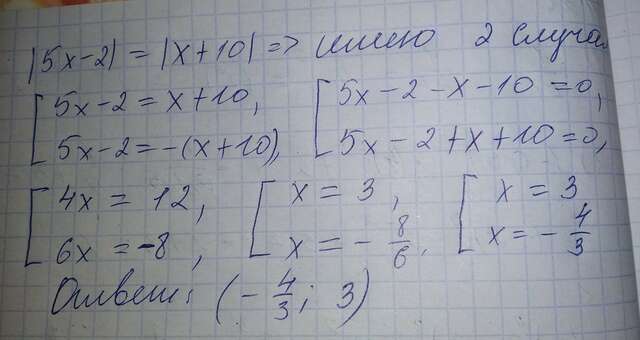 |5x-2| = |x+10| => имею 2 случая
[ 5x-2 = x+10, [ 5x-2-x-10=0,
[ 5x-2=-(x+10), [ 5x-2+x+10=0,
[ 4x = 12, [ x = 3, [ x = 3
[ 6x = -8, [ x = - 8/6. [ x = - 4/3
Ответ: (- 4/3; 3)